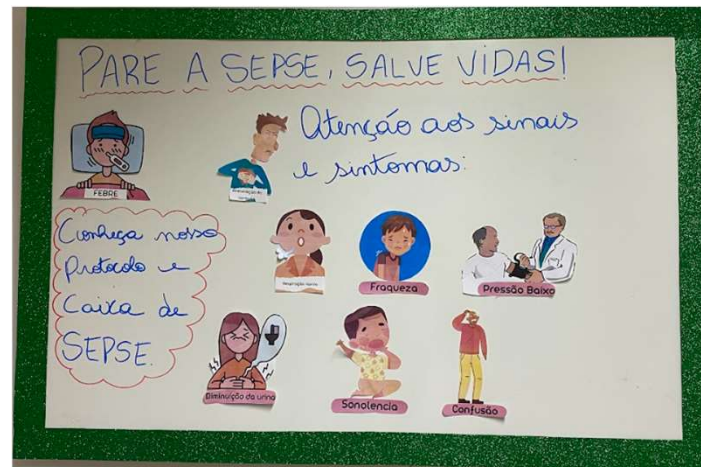 PARE A SEPSE, SALVE VIDAS!
Atenção aos sinais
e sintomas:
FEBRE
Conheça nosso
Protocolo e
Caixa de
SEPSE.
Respiração rápida
Fraqueza
Pressão Baixa
Diminuição da urina
Sonolencia
Confusão